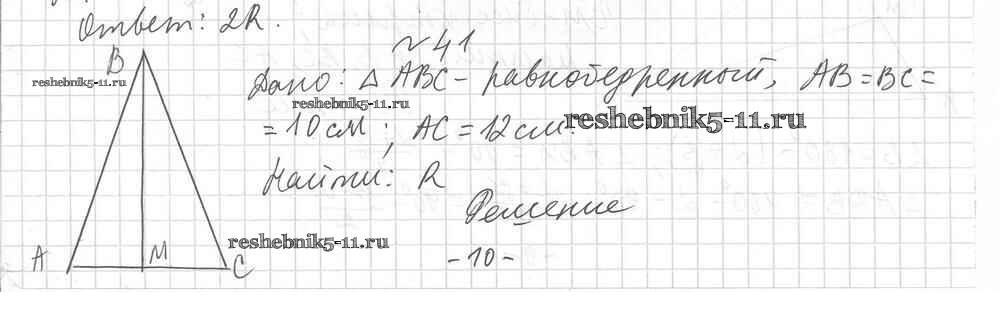 Ответ: 2R.
№41
B
reshebnik5-11.ru
Дано: △ ABC - равнобедренный, AB = BC =
reshebnik5-11.ru
= 10 см; AC = 12 см.
reshebnik5-11.ru
Найти: R
Решение
reshebnik5-11.ru
A M C
- 10 -